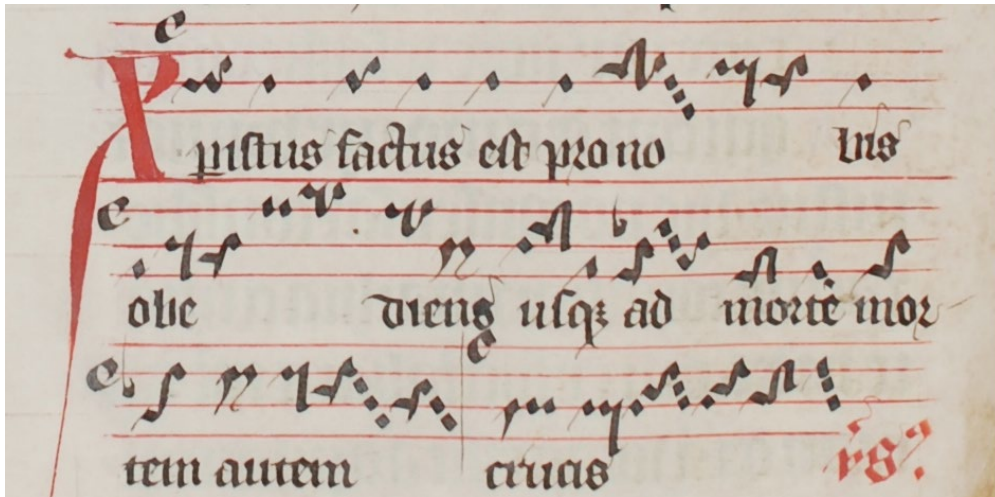 Xpistus factus est pro no vis
obe diens usqꝫ ad mortē mor
tem autem crucis
v̄s